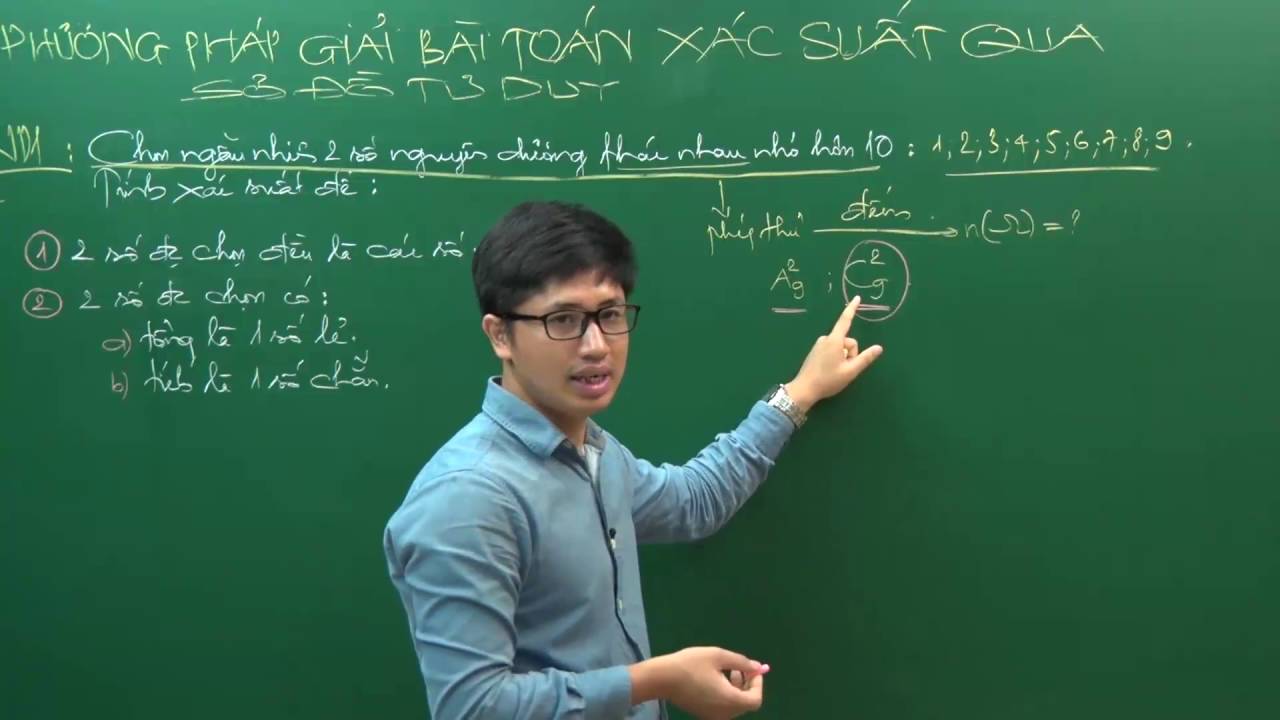 PHƯƠNG PHÁP GIẢI BÀI TOÁN XÁC SUẤT QUA
SƠ ĐỒ TƯ DUY
VD1 : Chọn ngẫu nhiên 2 số nguyên dương khác nhau nhỏ hơn 10 : 1, 2; 3; 4; 5; 6; 7; 8; 9.
Tính xác suất để :
① 2 số đc chọn đều là các số
② 2 số đc chọn có :
a) tổng là 1 số lẻ.
b) tích là 1 số chẵn.
phép thử đếm n(Ω) = ?
A²₉ ; C²₉